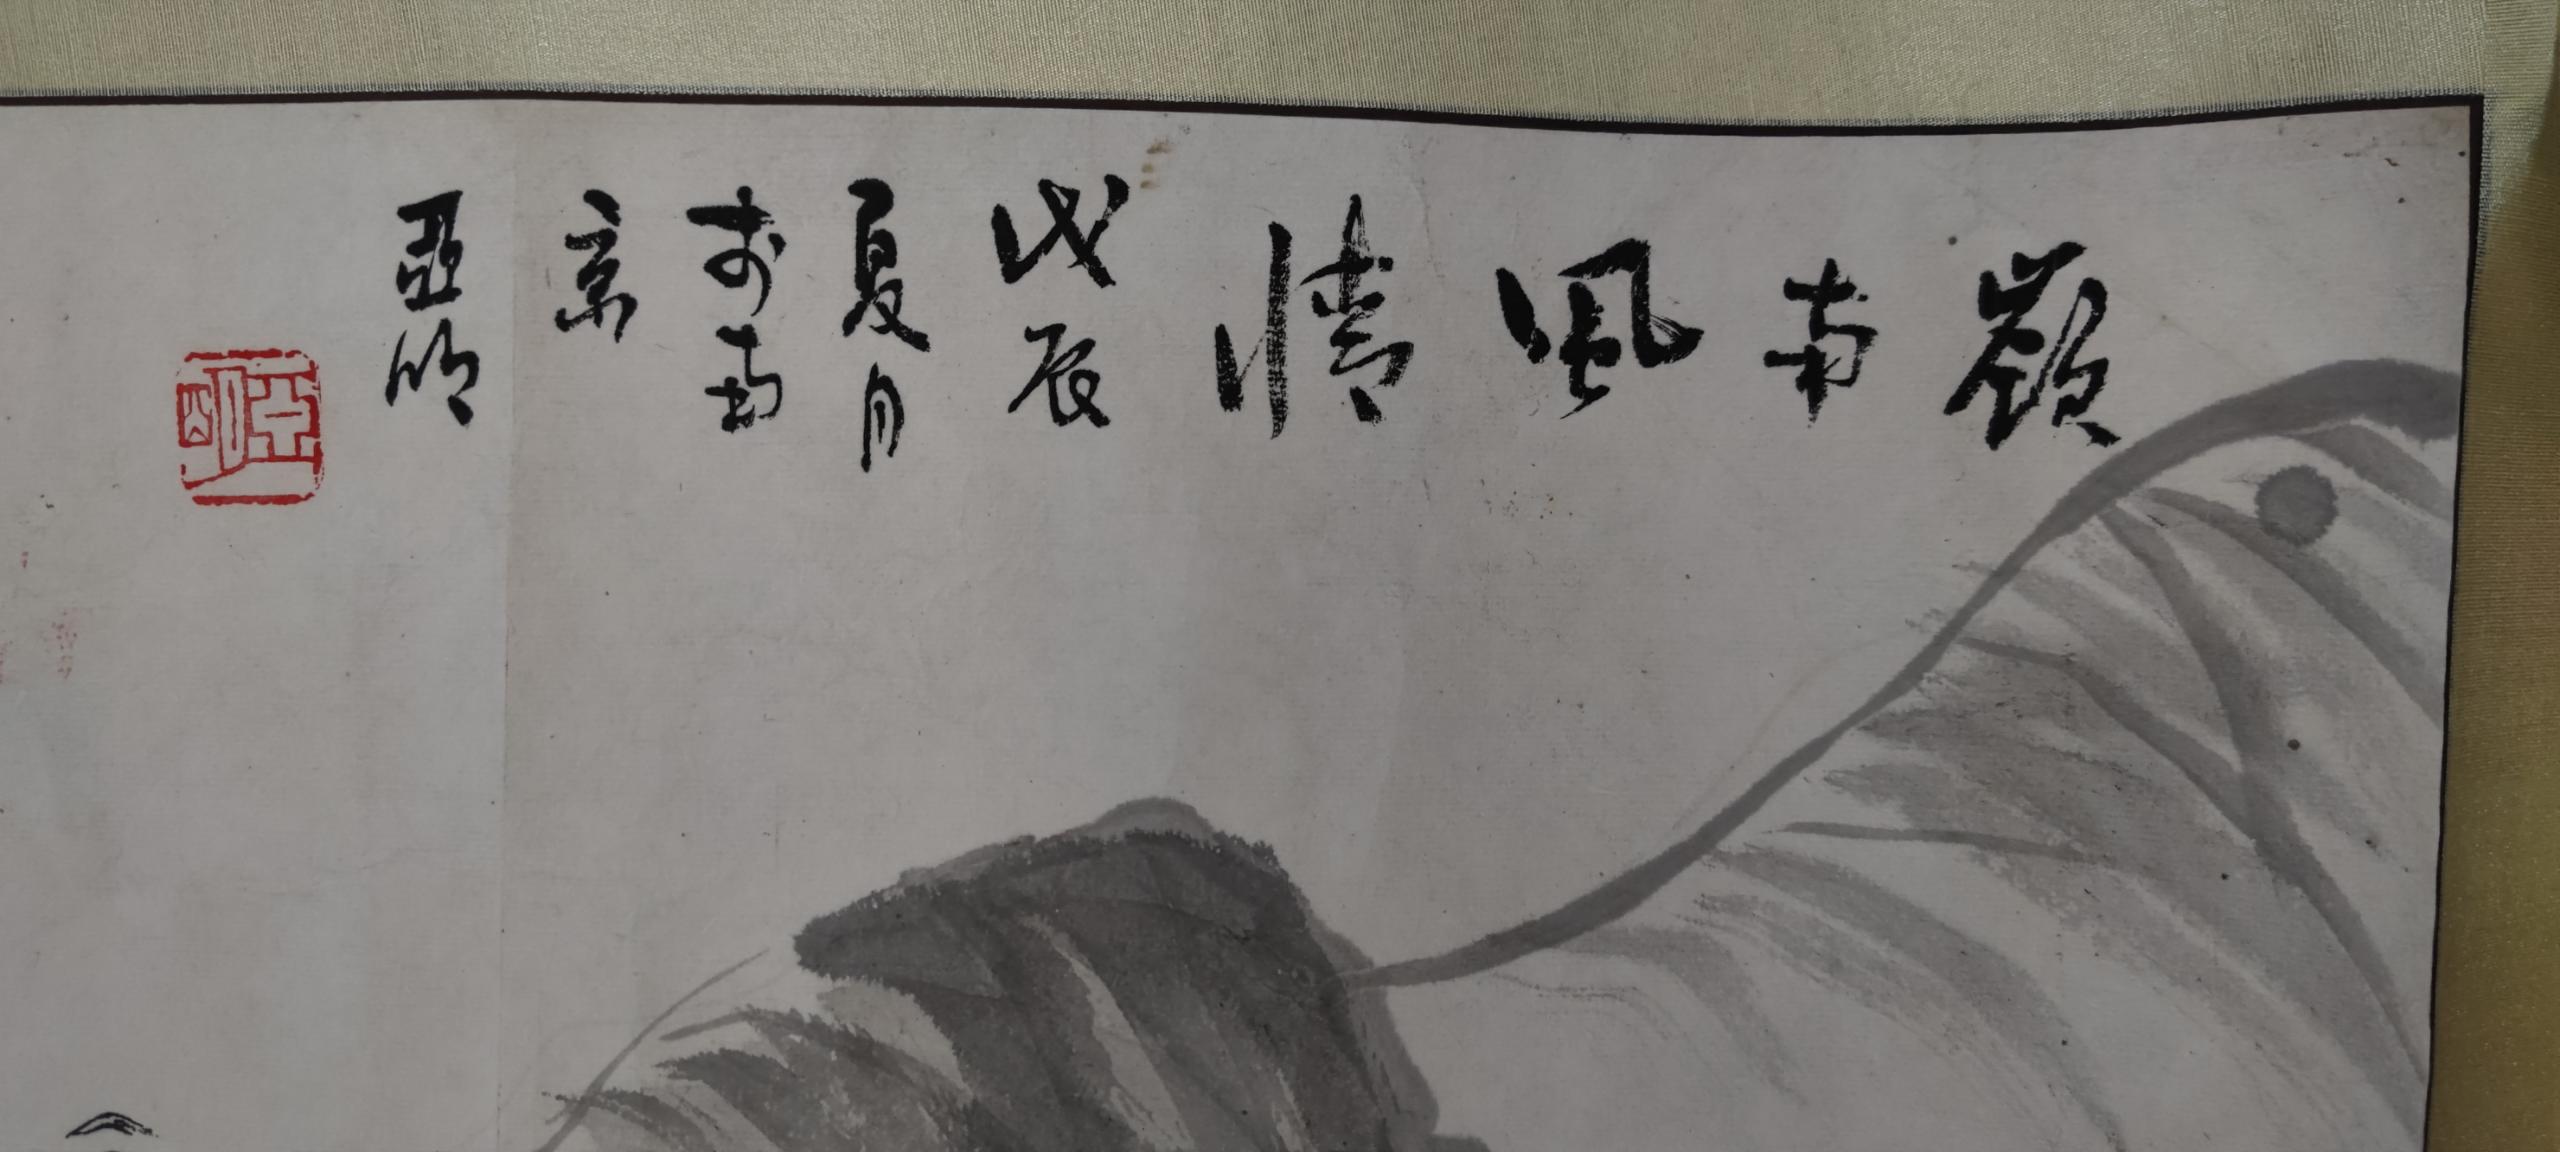 嶺南風情
戊辰
夏月
於南
京
亞明
亞明